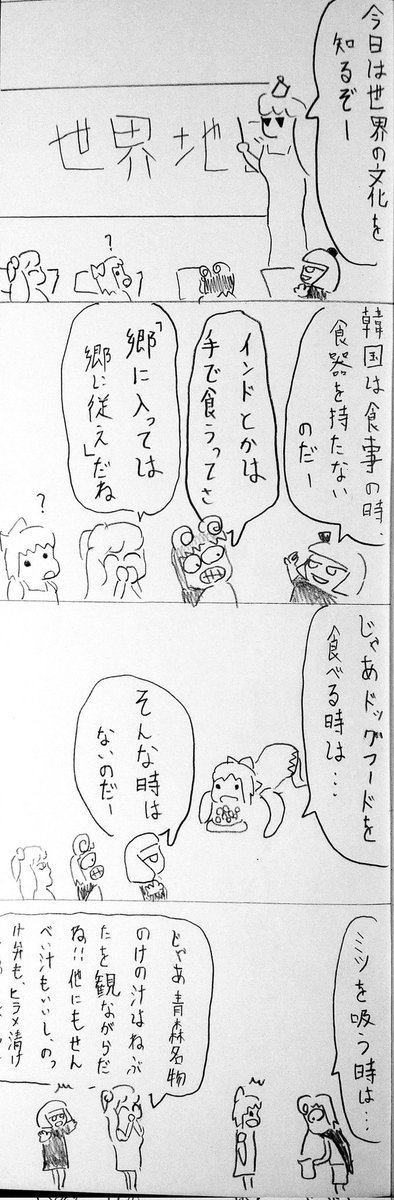 今日は世界の文化を
知るぞー
世界地
?
韓国は食事の時、
食器を持たない
のだー
インドとかは
手で食うってさ
「郷に入っては
郷に従え」だね
?
じゃあドッグフードを
食べる時は…
そんな時は
ないのだー
ミツを吸う時は…
じゃあ青森名物
のけの汁はねぶ
たを観ながらだ
ね!!他にもせん
べい汁もいいし、のっ
け弁も、ヒラメ漬け